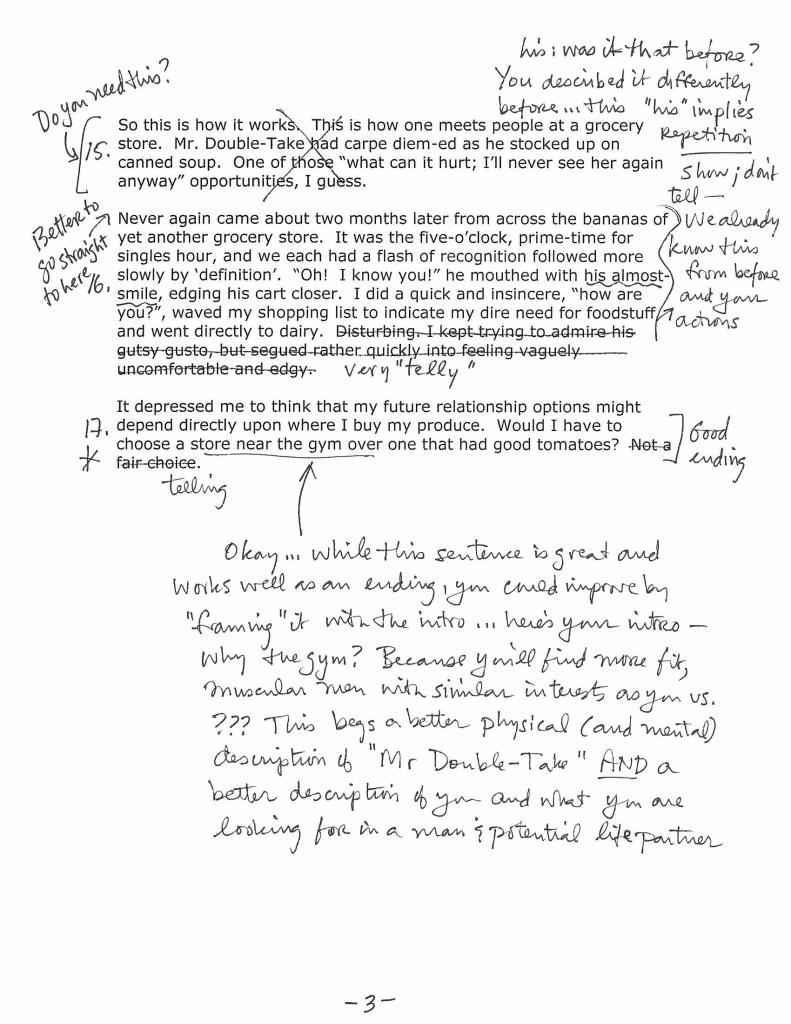 his: was it that before?
You described it differently
before... this "his" implies
Repetition
Show; don't
tell —
Do you need this?
15.
So this is how it works. This is how one meets people at a grocery
store. Mr. Double-Take had carpe diem-ed as he stocked up on
canned soup. One of those “what can it hurt; I’ll never see her again
anyway” opportunities, I guess.
Better to
go straight
to here
16.
Never again came about two months later from across the bananas of
yet another grocery store. It was the five-o’clock, prime-time for
singles hour, and we each had a flash of recognition followed more
slowly by ‘definition’. “Oh! I know you!” he mouthed with his almost-
smile, edging his cart closer. I did a quick and insincere, “how are
you?”, waved my shopping list to indicate my dire need for foodstuff,
and went directly to dairy. Disturbing. I kept trying to admire his
gutsy gusto, but segued rather quickly into feeling vaguely
uncomfortable and edgy.
very "telly"
We already
know this
from before
and your
actions
17.
It depressed me to think that my future relationship options might
depend directly upon where I buy my produce. Would I have to
choose a store near the gym over one that had good tomatoes? Not a
fair choice.
telling
Good
ending
Okay... while this sentence is great and
works well as an ending, you could improve by
"framing" it with the intro... here's your intro —
Why the gym? Because you'll find more fit,
muscular men with similar interests as you vs.
??? This begs a better physical (and mental)
description of "Mr Double-Take" AND a
better description of you and what you are
looking for in a man & potential life partner
-3-